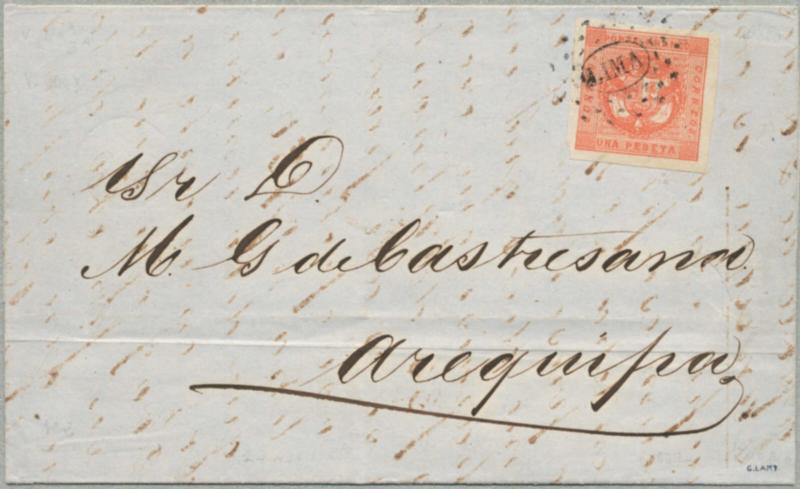 LIMA
CORREOS
UNA PESETA
Sr D.
M. G de Castresana
Arequipa
G.LAMY